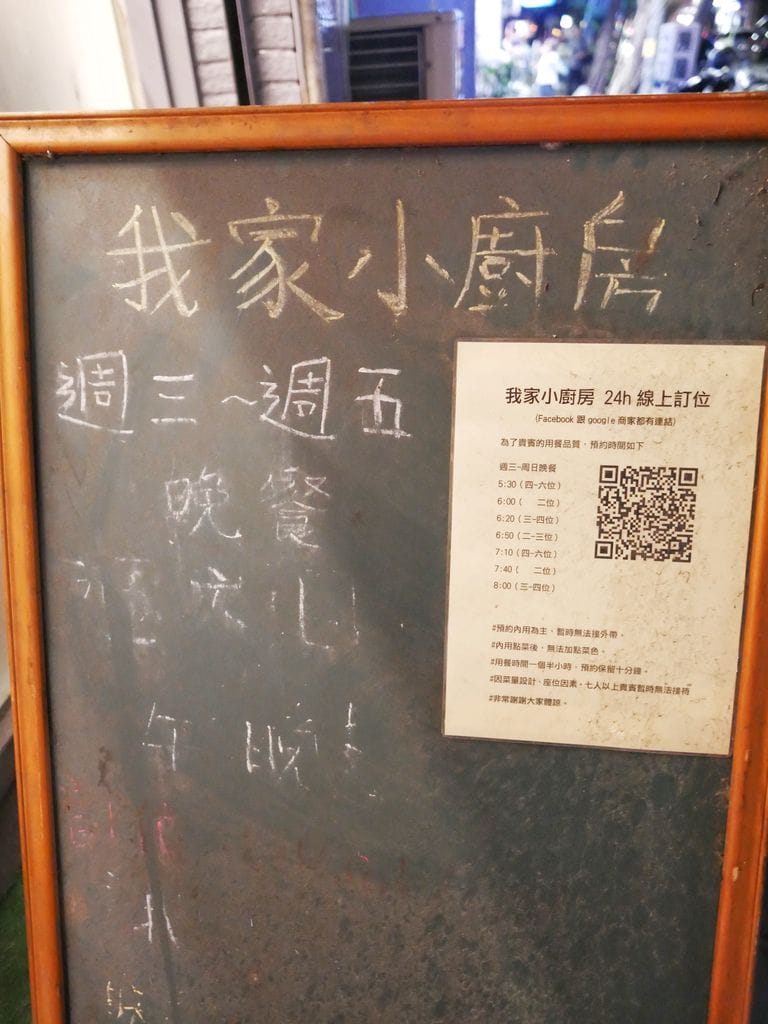 我家小廚房
週三~週五
晚餐
六日
午 晚
我家小廚房 24h 線上訂位
(Facebook 跟 google 商家都有連結)
為了貴賓的用餐品質，預約時間如下
週三~周日晚餐
5:30 (四~六位)
6:00 ( 二位)
6:20 (三~四位)
6:50 (二~三位)
7:10 (四~六位)
7:40 ( 二位)
8:00 (三~四位)
#預約內用為主，暫時無法接外帶。
#內用點菜後，無法加點菜色。
#用餐時間一個半小時，預約保留十分鐘。
#因菜量設計、座位因素，七人以上貴賓暫時無法接待
#非常謝謝大家體諒。